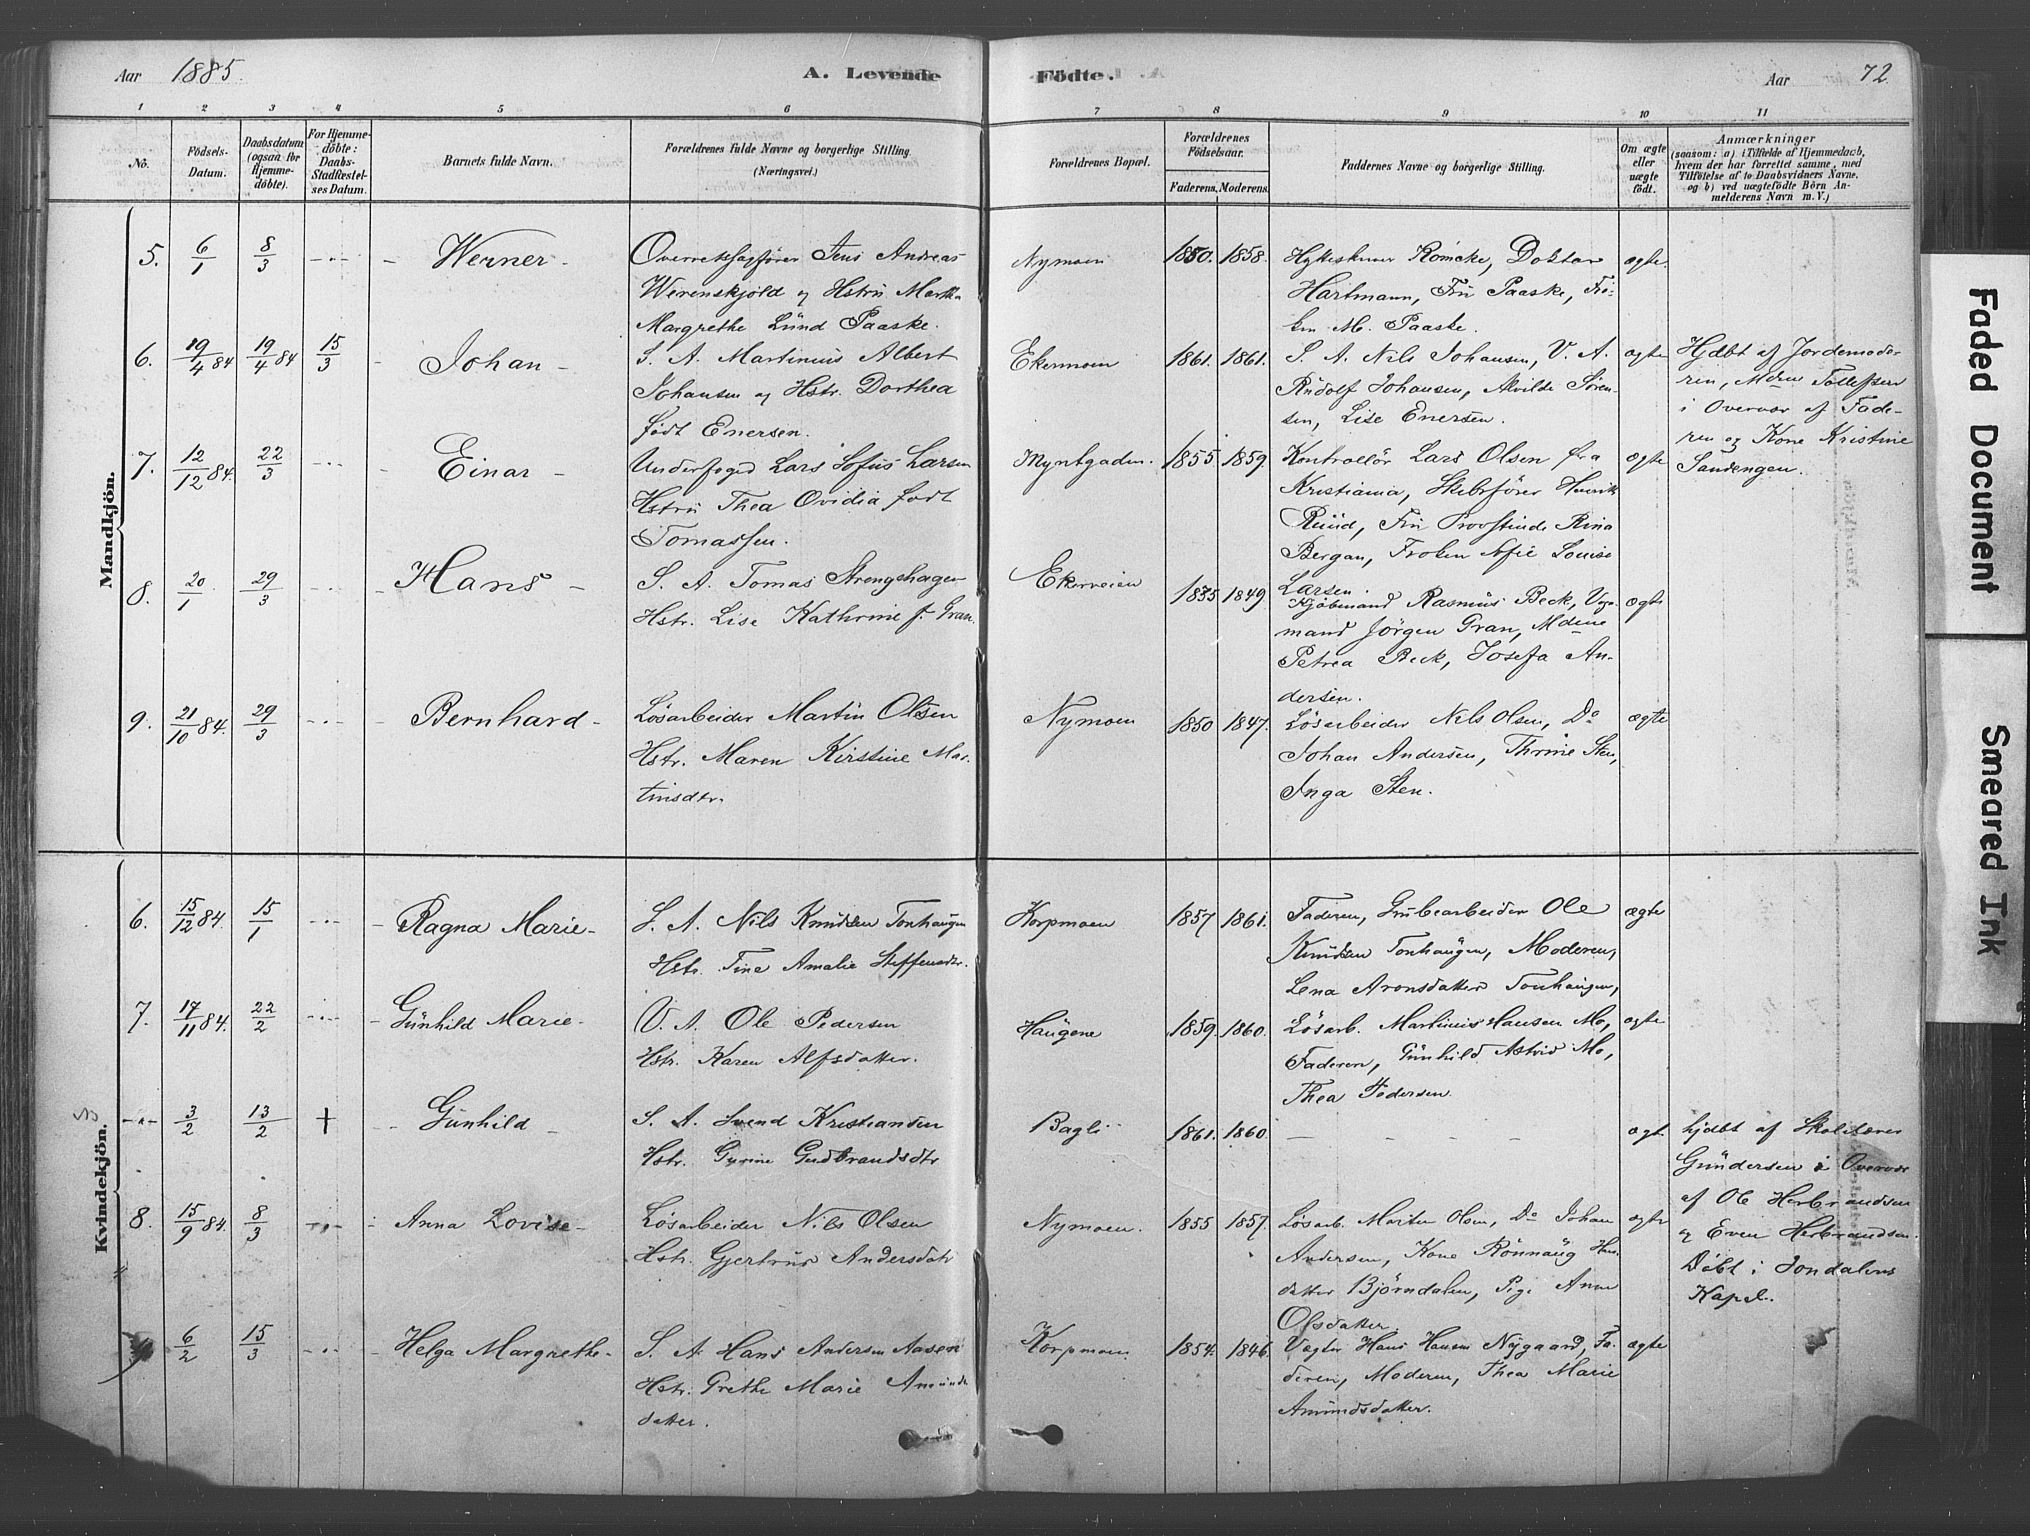 Aar 1885. A. Levende Födte. Aar 72
1 2 3 4 5 6 7 8 9 10 11
No.
Födsels-
Datum.
Daabsdatum
(ogsaa for
Hjemme-
döbte).
For Hjemme-
döbte:
Daabs-
Stadfæstel-
ses Datum.
Barnets fulde Navn.
Forældrenes fulde Navne og borgerlige Stilling.
(Næringsvei.)
Forældrenes Bopæl.
Forældrenes
Födselsaar.
Faderens. Moderens.
Faddernes Navne og borgerlige Stilling.
Om ægte
eller
uægte
födt.
Anmærkninger
(saasom: a) i Tilfælde af Hjemmedaab,
hvem der har forrettet samme, med
Tilföielse af to Daabsvidners Navne,
og b) ved uægtefödte Börn An-
melderens Navn m. V.)
Mandkjön.
5. 6/1 8/3 Werner
Overretssagfører Jens Andreas
Werenskjold og Hstru Martha
Margrethe Lund Paaske.
Nymoen 1850. 1858.
Rømcke, Doktor
Hartmann, Fru Paaske, Frø-
ken M. Paaske.
ægte.
6. 19/4 84 19/4 84 15/3 Johan
S. A. Martinius Albert
Johansen og Hstr. Dorthea
født Enersen.
Ekermoen 1861. 1861.
S. A. Nils Johansen, V. A.
Rudolf Johansen, Alvilde Søren-
sen, Lise Enersen.
ægte
Hjdbt af Jordemoder
ren, Mdme Tollefsen
i Overvær af Fade-
ren og Kone Kristine
Sandengen.
7. 12/12 84. 22/3 Einar
Underfoged Lars Sofus Larsen
Hstru Thea Ovidia født
Tomassen.
Myntgaden. 1855. 1859.
Kontrollør Lars Olsen fra
Kristiania, Skibsfører Henrik
Ruud, Fru Provstinde Rina
Bergan, Frøken Sofie Louise
Larsen.
ægte
8. 20/1 29/3 Hans
S. A. Tomas Strengehagen
Hstr. Lise Kathrine f. Gran.
Ekerveien 1835 1849
Kjøbmand Rasmus Beck, Vog-
mand Jørgen Gran, Mdme
Petrea Beck, Josefa An-
dersen.
ægte
9. 21/10 84. 29/3 Bernhard
Løsarbeider Martin Olsen
Hstr. Maren Kirstine Mar-
tinsdtr.
Nymoen 1850 1847.
Løsarbeider Nils Olsen, Do
Johan Andersen, Thrine Sten,
Inga Sten.
ægte
Kvindekjön.
6. 15/12 84. 15/1 Ragna Marie
S. A. Nils Knudsen Tonhaugen
Hstr. Tine Amalie Steffensdtr.
Korpmoen 1857 1861.
Faderen, Grubearbeider Ole
Knudsen Tonhaugen, Moderen,
Lena Aronsdatter Tonhaugen,
ægte
7. 17/11 84. 22/2 Gunhild Marie
V. A. Ole Pedersen
Hstr. Karen Alfsdatter.
Haugene 1859. 1860.
Løsarb. Martinus Hansen Mo,
Faderen, Gunhild Astrid Mo,
Thea Pedersen.
ægte
3/2 13/2 + Gunhild
S. A. Svend Kristiansen
Hstr. Gurine Gudbrandsdtr
Bagli 1861. 1860.
ægt.
hjdbt af Skolelærer
Gundersen i Overvær
af Ole Herbrandsen
og Even Herbrandsen.
Døbt i Jondalens
Kapel.
8. 15/9 84. 8/3 Anna Lovise
Løsarbeider Nils Olsen
Hstr. Gjertrud Andersdatr
Nymoen. 1855 1857.
Løsarb. Martin Olsen, Do Johan
Andersen, Kone Rønnaug Hans
datter Bjørndalen, Pige Anne
Olsdatter.
ægte
9 6/2 15/3 Helga Margrethe
S. A. Hans Andersen Aasen
Hstr. Grethe Marie Amunds
datter.
Korpmoen. 1854. 1846.
Vægter Hans Hansen Nygaard, Fa-
deren, Moderen, Thea Marie
Amundsdatter.
ægte
Faded Document
Smeared Ink